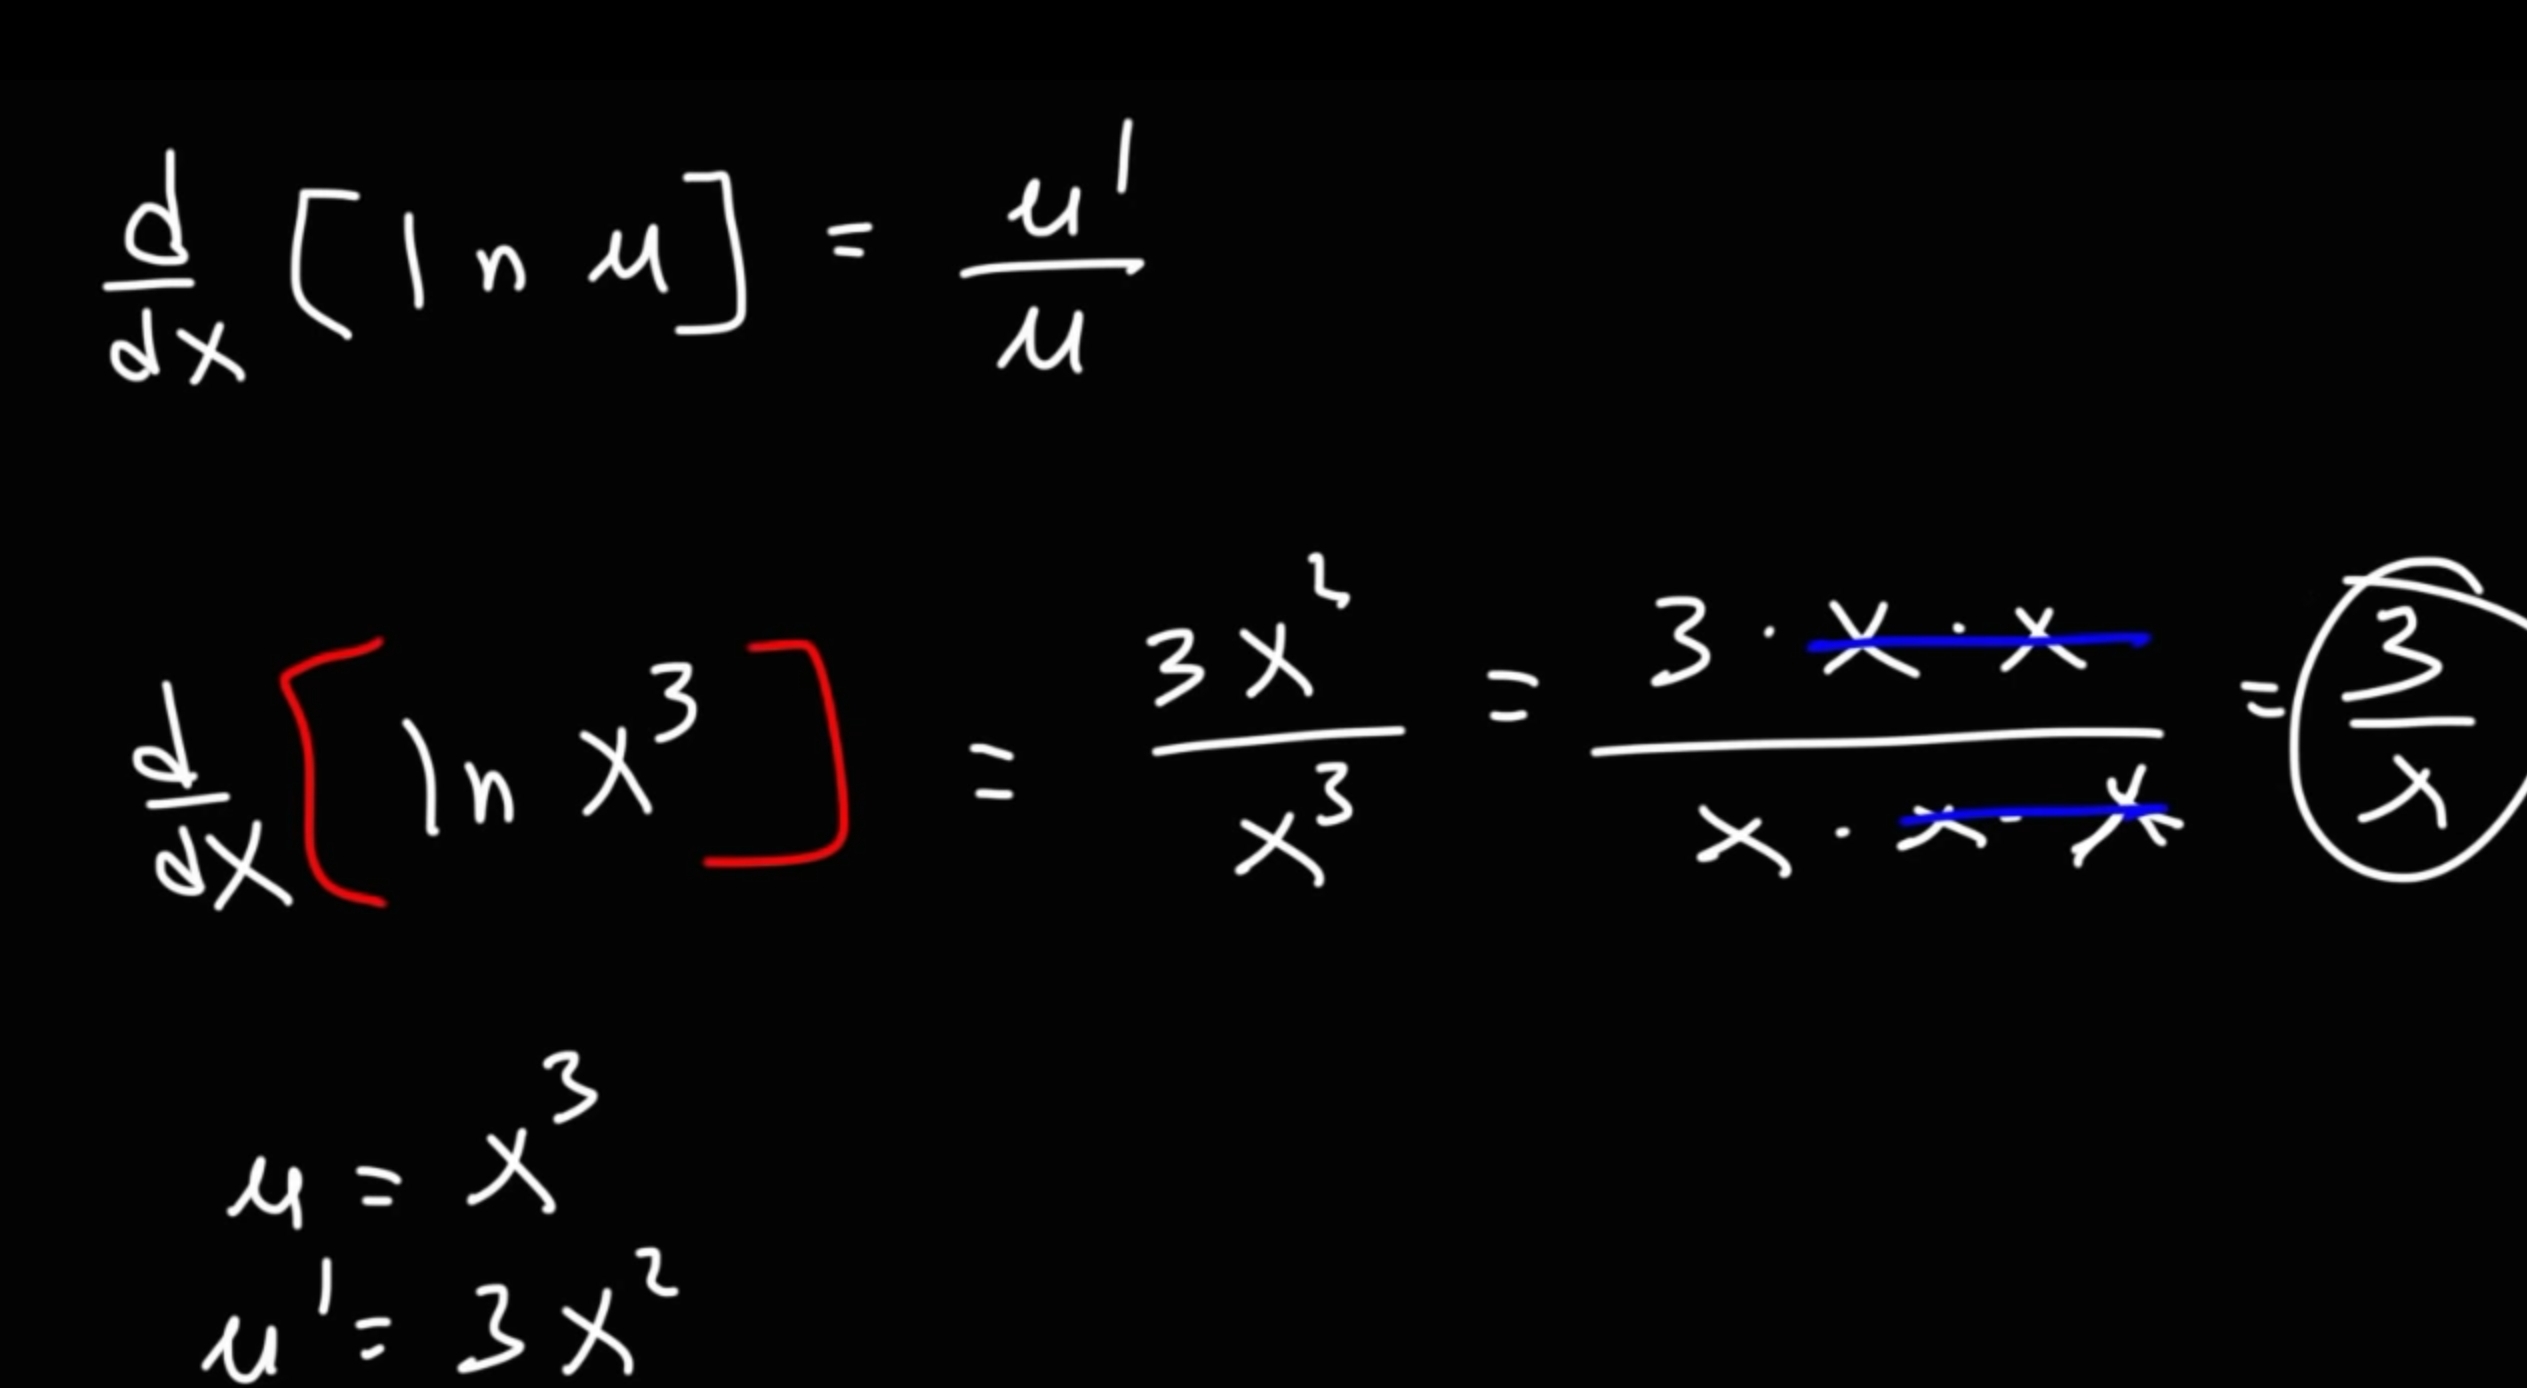 d/dx [ln u] = u'/u
d/dx [ln x³] = 3x²/x³ = 3·x·x/x·x·x = 3/x
u = x³
u' = 3x²